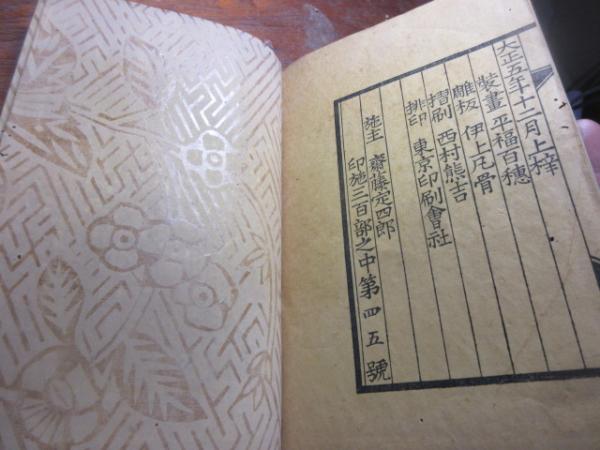 大正五年十二月上梓
裝畫 平福百穗
雕板 伊上凡骨
摺刷 西村熊吉
排印 東京印刷會社
施主 齋藤定四郎
印施三百部之中第四五號